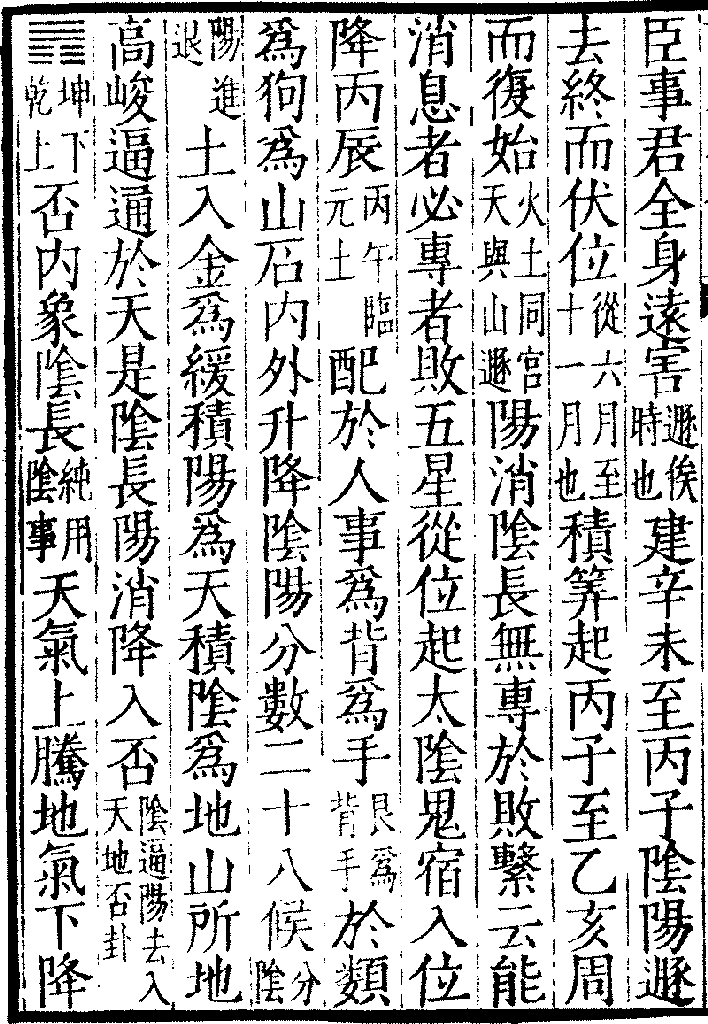 臣事君全身遠害遯俟時也建辛未至丙子陰陽遯
去終而伏位從六月至十一月也積筭起丙子至乙亥周
而復始火土同宮天與山遯陽消陰長無專於敗繫云能
消息者必專者敗五星從位起太陰鬼宿入位
降丙辰丙午臨元土配於人事爲背爲手艮爲背手於類
爲狗爲山石內外升降陰陽分數二十八候分陰
陽進退土入金爲緩積陽爲天積陰爲地山所地
高峻逼通於天是陰長陽消降入否陰逼陽去入天地否卦
䷋坤下乾上否內象陰長純用陰事天氣上騰地氣下降